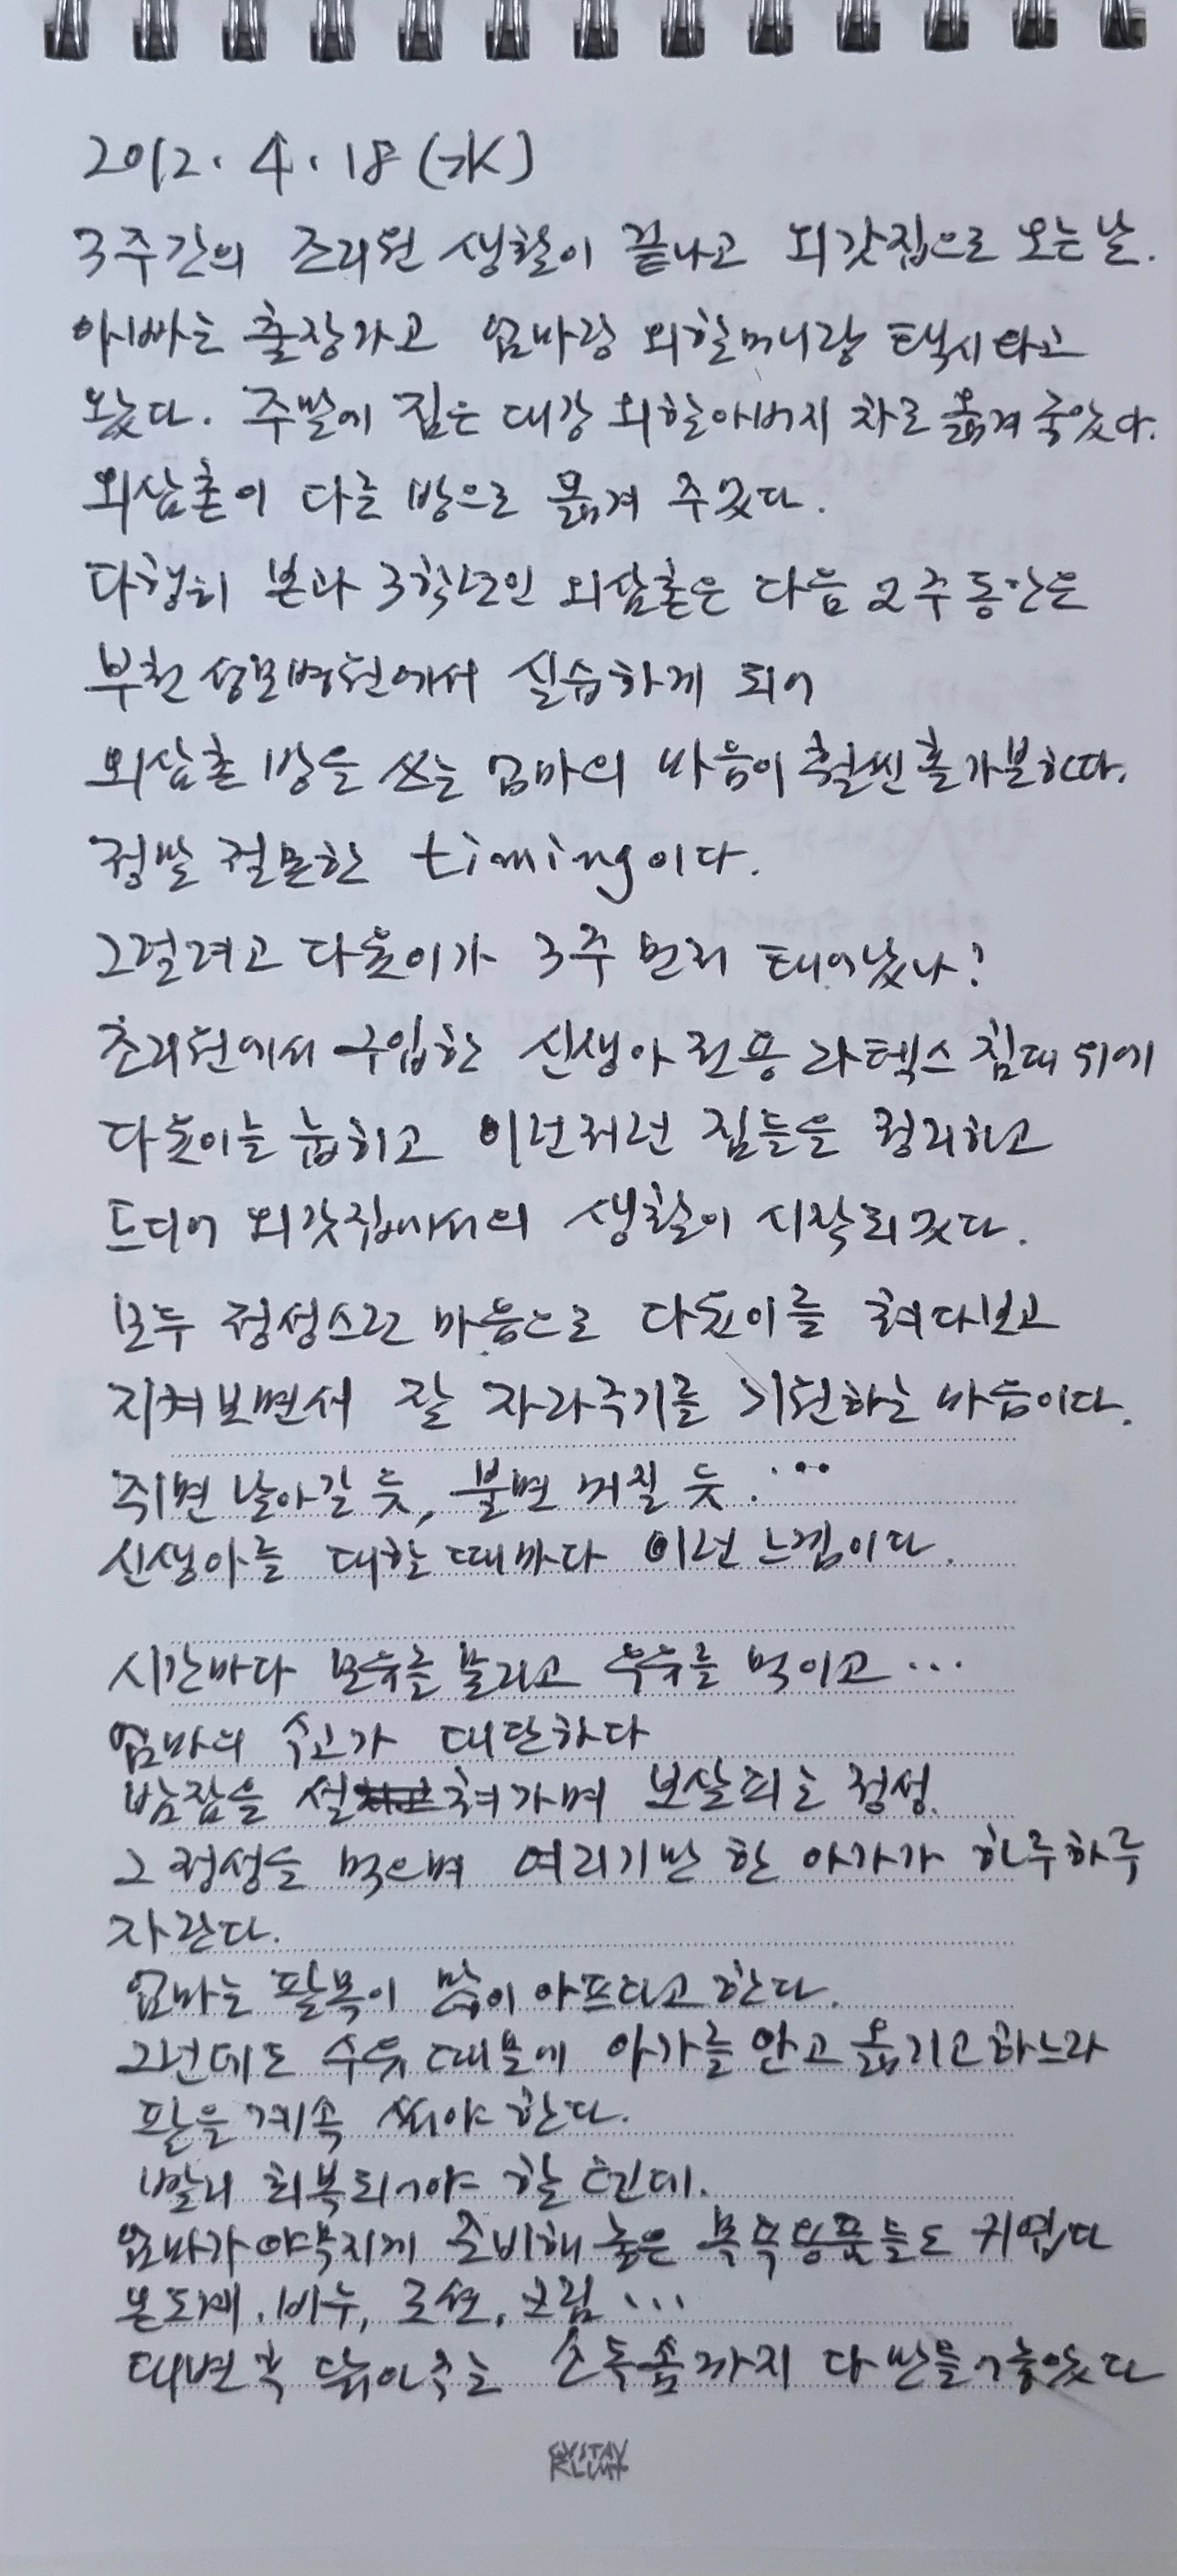 2012. 4. 18 (水)
3주간의 조리원 생활이 끝나고 외갓집으로 오는 날.
아빠는 출장가고 엄마랑 외할머니랑 택시타고
왔다. 주말에 짐은 대강 외할아버지 차로 옮겨 줬었다.
외삼촌이 다른 방으로 옮겨 주었다.
다행히 본과 3학년인 외삼촌은 다음 2주 동안은
부천 성모병원에서 실습하게 되어
외삼촌 방을 쓰는 엄마의 마음이 훨씬 홀가분하다.
정말 절묘한 timing이다.
그럴려고 다윤이가 3주 먼저 태어났나?
조리원에서 구입한 신생아 전용 라텍스 침대 위에
다윤이를 눕히고 이런저런 짐들을 정리하고
드디어 외갓집에서의 생활이 시작되었다.
모두 정성스런 마음으로 다윤이를 쳐다보고
지켜보면서 잘 자라주기를 기원하는 마음이다.
쥐면 날아갈 듯, 불면 꺼질 듯 ...
신생아를 대할 때마다 이런 느낌이다.
시간마다 모유를 물리고 우유를 먹이고 ...
엄마의 수고가 대단하다
밤잠을 설쳐가며 보살피는 정성.
그 정성을 먹으며 여리기만 한 아가가 하루하루
자란다.
엄마는 팔목이 많이 아프다고 한다.
그런데도 수유 때문에 아가를 안고 옮기고 하느라
팔을 계속 써야 한다.
빨리 회복되어야 할 텐데.
엄마가 야무지게 준비해 놓은 목욕용품들도 귀엽다
온도계, 비누, 로션, 크림 ...
대변 후 닦아주는 소독솜까지 다 만들어놓았다
GUSTAV
KLIMT